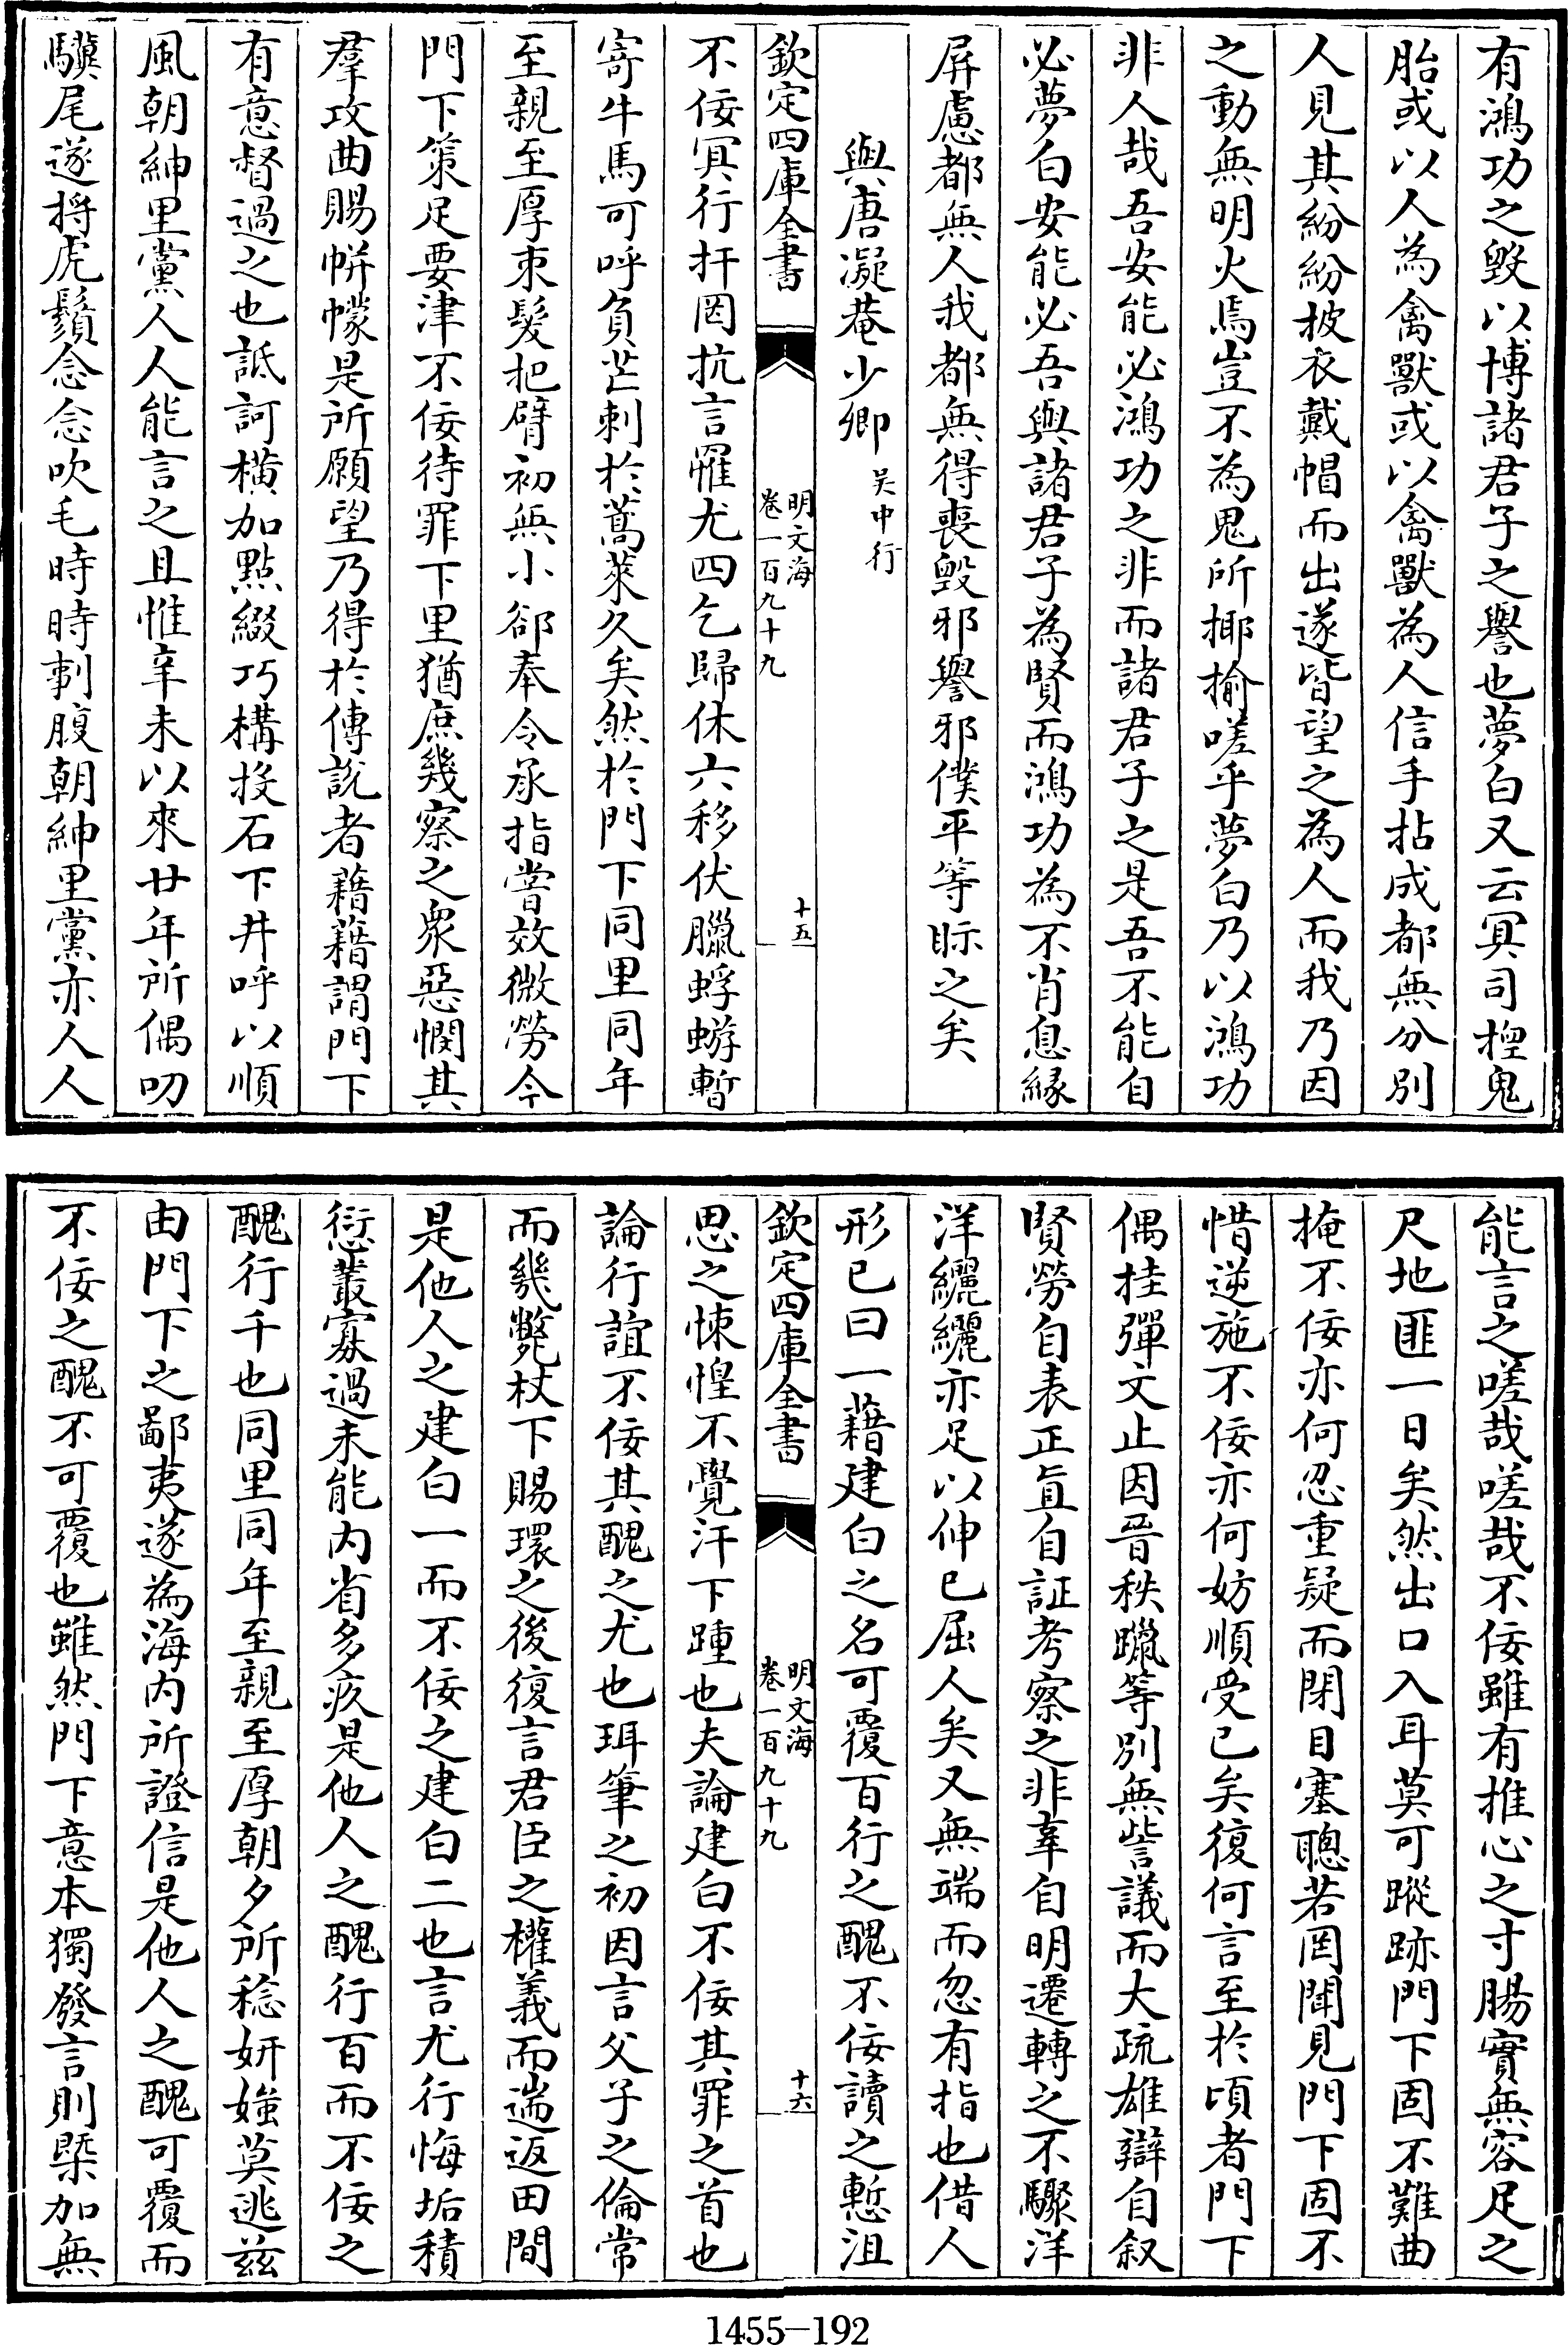 有鴻功之毀以博諸君子之譽也夢白又云冥司捏鬼
胎或以人為禽獸或以禽獸為人信手拈成都無分別
人見其紛紛披衣戴帽而出遂皆望之為人而我乃因
之動無明火焉豈不為鬼所揶揄嗟乎夢白乃以鴻功
非人哉吾安能必鴻功之非而諸君子之是吾不能自
必夢白安能必吾與諸君子為賢而鴻功為不肖息緣
屏慮都無人我都無得喪毀邪譽邪僕平等眎之矣
與唐凝菴少卿 吴中行
欽定四庫全書 明文海 卷一百九十九 十五
不佞冥行扞罔抗言罹尤四乞歸休六移伏臘蜉蝣暫
寄牛馬可呼負芒刺於蒿萊久矣然於門下同里同年
至親至厚束髮把臂初無小郤奉令承指嘗效微勞今
門下策足要津不佞待罪下里猶庶幾察之衆惡憫其
羣攻曲賜帡幪是所願望乃得於傳說者藉藉謂門下
有意督過之也詆訶橫加點綴巧構投石下井呼以順
風朝紳里黨人人能言之且惟辛未以來廿年所偶叨
驥尾遂捋虎鬚念念吹毛時時剚腹朝紳里黨亦人人
能言之嗟哉嗟哉不佞雖有推心之寸腸實無容足之
尺地匪一日矣然出口入耳莫可蹤跡門下固不難曲
掩不佞亦何忍重疑而閉目塞聰若罔聞見門下固不
惜逆施不佞亦何妨順受已矣復何言至於頃者門下
偶挂彈文止因晉秩躐等別無訾議而大疏雄辯自叙
賢勞自表正直自証考察之非辜自明遷轉之不驟洋
洋纚纚亦足以伸已屈人矣又無端而忽有指也借人
形已曰一藉建白之名可覆百行之醜不佞讀之慙沮
欽定四庫全書 明文海 卷一百九十九 十六
思之悚惶不覺汗下踵也夫論建白不佞其罪之首也
論行誼不佞其醜之尤也珥筆之初因言父子之倫常
而幾斃杖下賜環之後復言君臣之權義而遄返田間
是他人之建白一而不佞之建白二也言尤行悔垢積
愆叢寡過未能内省多疚是他人之醜行百而不佞之
醜行千也同里同年至親至厚朝夕所稔妍媸莫逃兹
由門下之鄙夷遂為海内所證信是他人之醜可覆而
不佞之醜不可覆也雖然門下意本獨發言則槩加無
1455-192